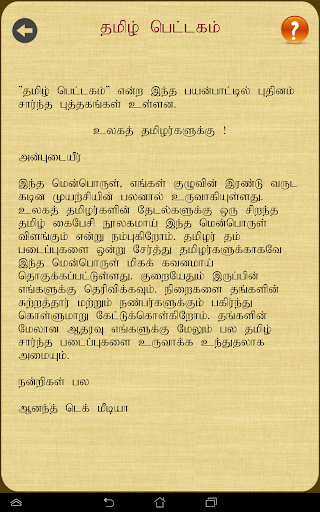 தமிழ் பெட்டகம்
?
"தமிழ் பெட்டகம்" என்ற இந்த பயன்பாட்டில் புதினம்
சார்ந்த புத்தகங்கள் உள்ளன.
உலகத் தமிழர்களுக்கு !
அன்புடையீர்
இந்த மென்பொருள், எங்கள் குழுவின் இரண்டு வருட
கடின முயற்சியின் பலனால் உருவாகியுள்ளது.
உலகத் தமிழர்களின் தேடல்களுக்கு ஒரு சிறந்த
தமிழ் கைபேசி நூலகமாய் இந்த மென்பொருள்
விளங்கும் என்று நம்புகிறோம். தமிழர் தம்
படைப்புகளை ஒன்று சேர்த்து தமிழர்களுக்காகவே
இந்த மென்பொருள் மிகக் கவனமாய்
தொகுக்கப்பட்டுள்ளது. குறையேதும் இருப்பின்
எங்களுக்கு தெரிவிக்கவும். நிறைகளை தங்களின்
சுற்றத்தார் மற்றும் நண்பர்களுக்கும் பகிர்ந்து
கொள்ளுமாறு கேட்டுக்கொள்கிறோம். தங்களின்
மேலான ஆதரவு எங்களுக்கு மேலும் பல தமிழ்
சார்ந்த படைப்புகளை உருவாக்க உந்துதலாக
அமையும்.
நன்றிகள் பல
ஆனந்த் டெக் மீடியா